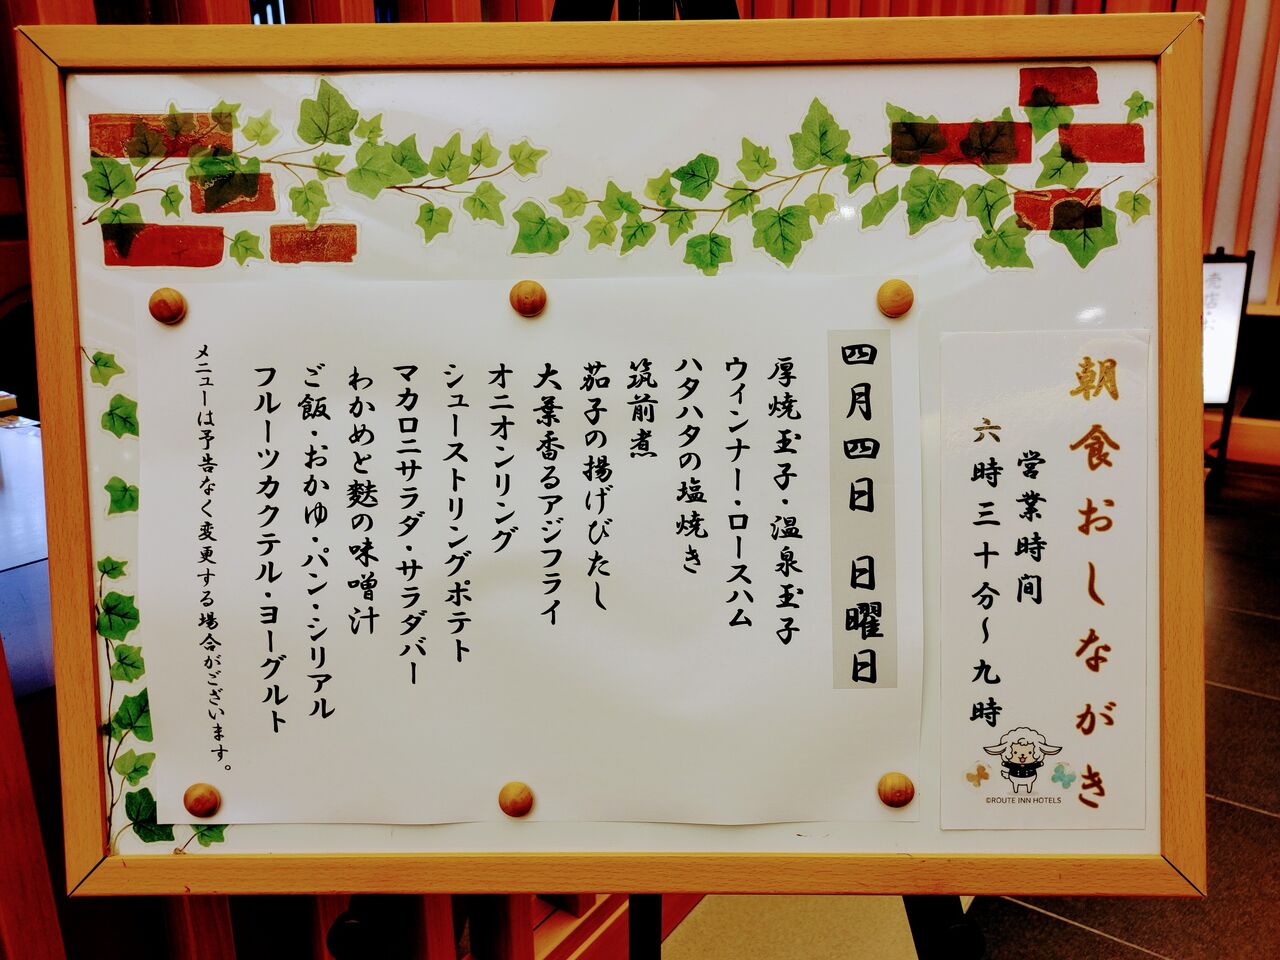 朝食おしながき
営業時間
六時三十分～九時
©ROUTE INN HOTELS
四月四日 日曜日
厚焼玉子・温泉玉子
ウィンナー・ロースハム
ハタハタの塩焼き
筑前煮
茄子の揚げびたし
大葉香るアジフライ
オニオンリング
シューストリングポテト
マカロニサラダ・サラダバー
わかめと麩の味噌汁
ご飯・おかゆ・パン・シリアル
フルーツカクテル・ヨーグルト
メニューは予告なく変更する場合がございます。